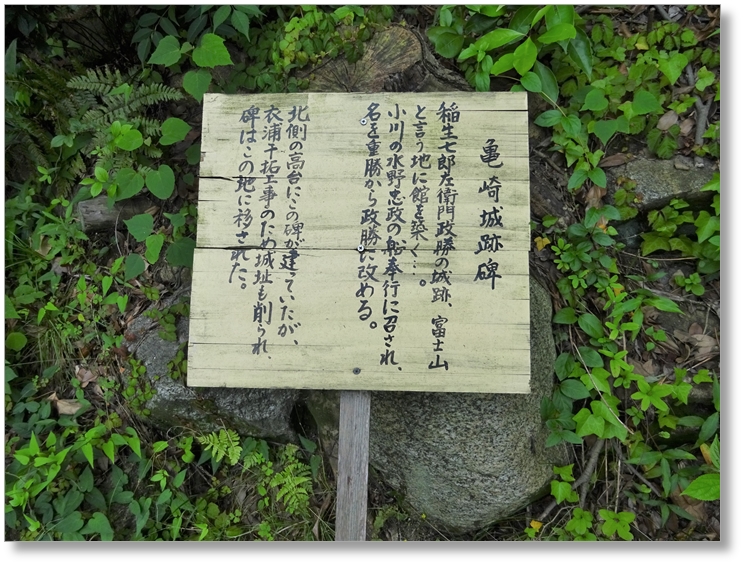 亀崎城跡碑
稲生七郎左衛門政勝の城跡、富士山
と言う地に館を築く…。
小川の水野忠政の船奉行に召され、
名を重勝から政勝に改める。
北側の高台にこの碑が建ていたが、
衣浦干拓工事のため城址も削られ、
碑はこの地に移された。